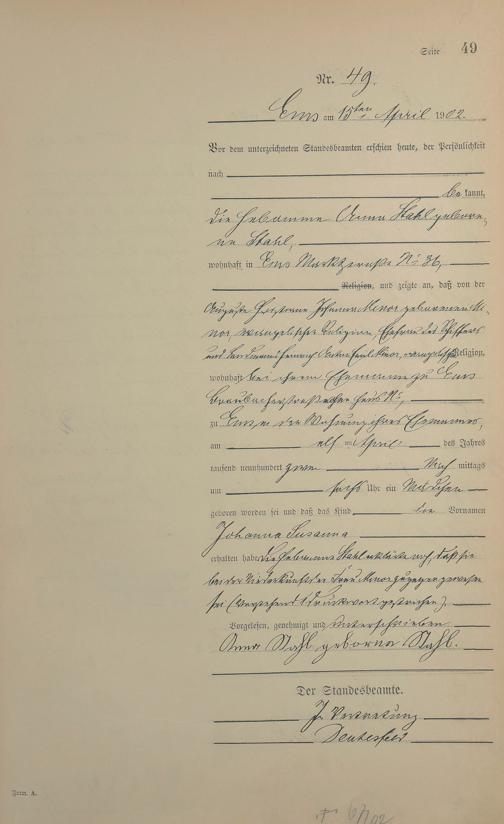 Seite 49
Nr. 49.
Ems am 15ten April 1902.
Vor dem unterzeichneten Standesbeamten erschien heute, der Persönlichkeit
nach
be kannt,
die Hebamme Anna Stahl gebore-
ne Stahl,
wohnhaft in Ems Marktstraße No 36,
Religion, und zeigte an, daß von der
Auguste Johanna Minor geborenen Mi-
nor evangelischer Religion, Ehefrau des Schiffers
und Landmanns Anton Emil Minor, evangelischer Religion,
wohnhaft bei ihrem Ehemanne zu Ems
Braubacherstraße No,
zu Ems, in der Wohnung ihres Ehemannes,
am elf ten April des Jahres
tausend neunhundert zwei Nach mittags
um sechs Uhr ein Mädchen
geboren worden sei und daß das Kind die Vornamen
Johanna Susanna
erhalten habe. Die Hebamme Stahl erklärte noch, daß sie
bei der Niederkunft der Frau Minor zugegen gewesen
sei (Vorstehend 1 Druckwort gestrichen).
Vorgelesen, genehmigt und unterschrieben
Anna Stahl geborne Stahl.
Der Standesbeamte.
In Vertretung
Form. A.